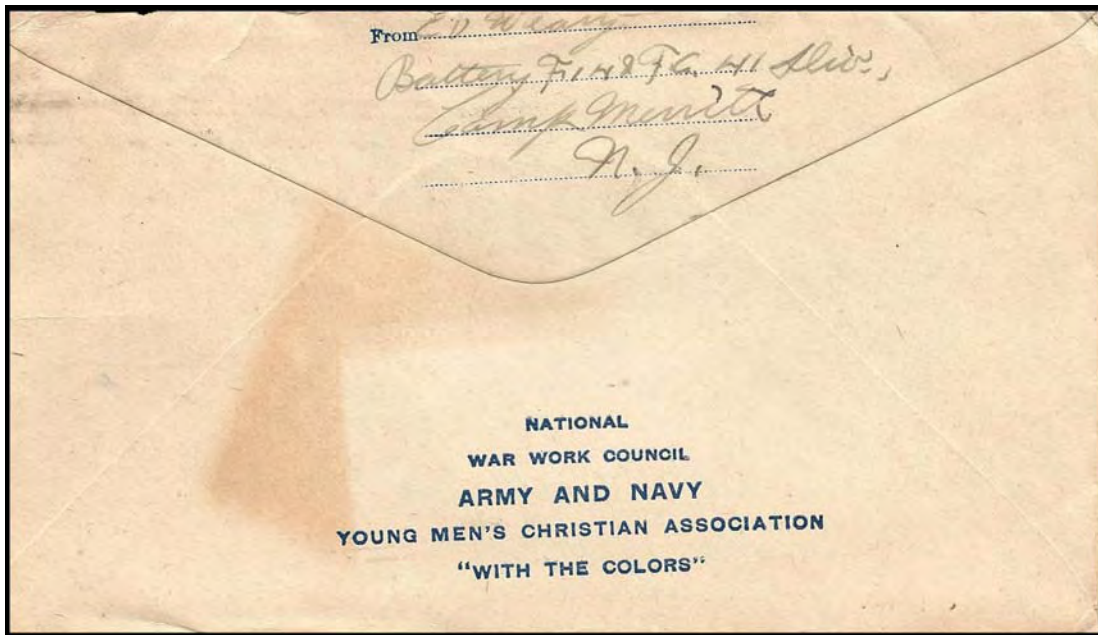 From Ed Weary
Battery F. 148 F.A. 41 Div.,
Camp Merritt
N. J.
NATIONAL
WAR WORK COUNCIL
ARMY AND NAVY
YOUNG MEN'S CHRISTIAN ASSOCIATION
"WITH THE COLORS"